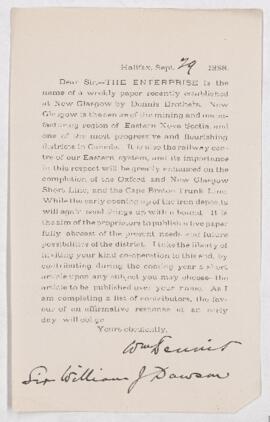 Halifax, Sept. 29 1888.
Dear Sir,—THE ENTERPRISE is the
name of a weekly paper recently established
at New Glasgow by Dennis Brothers. New
Glasgow is the centre of the mining and manu-
facturing region of Eastern Nova Scotia, and
one of the most progressive and flourishing
districts in Canada. It is also the railway cen-
tre of our Eastern system, and its importance
in this respect will be greatly enhanced on the
completion of the Oxford and New Glasgow
Short Line, and the Cape Breton Trunk Line.
While the early opening up of the iron deposits
will again send things up with a bound. It is
the aim of the proprietors to publish a live paper
fully abreast of the present needs and future
possibilities of the district. I take the liberty of
inviting your kind co-operation to this end, by
contributing during the coming year a short
article upon any subject you may choose—the
article to be published over your name. As I
am completing a list of contributors, the fav-
our of an affirmative response at an early
day will oblige
Yours obediently,
Wm Dennis
Sir William J Dawson